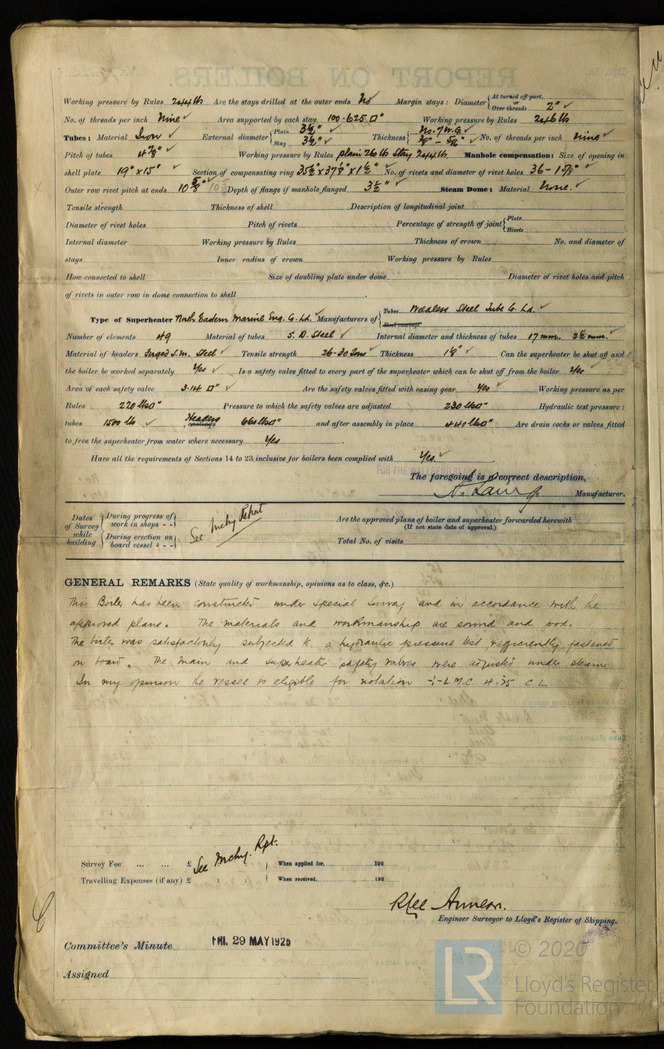 Working pressure by Rules 244 lb Are the stays drilled at the outer ends No Margin stays: Diameter { At turned off part, or Over threads 2" ✓
No. of threads per inch Nine ✓ Area supported by each stay 100.625 □" Working pressure by Rules 246 lb
Tubes: Material Iron ✓ External diameter { Plain 3½" ✓ Stay 3½" ✓ Thickness { No. 7 W.G. ✓ No. of threads per inch nine ✓
Pitch of tubes Working pressure by Rules plain 260 lb Stay 244 lb Manhole compensation: Size of opening in
shell plate 19" x 15" ✓ Section of compensating ring No. of rivets and diameter of rivet holes
Outer row rivet pitch at ends Depth of flange if manhole flanged 3½" ✓ Steam Dome: Material None. ✓
Tensile strength Thickness of shell Description of longitudinal joint
Diameter of rivet holes Pitch of rivets Percentage of strength of joint { Plate Rivets
Internal diameter Working pressure by Rules Thickness of crown No. and diameter of
stays Inner radius of crown Working pressure by Rules
How connected to shell Size of doubling plate under dome Diameter of rivet holes and pitch
of rivets in outer row in dome connection to shell
Type of Superheater North Eastern Marine Eng. Co. Ld. Manufacturers of { Tubes Weldless Steel Tube Co. Ld. ✓ Steel castings
Number of elements 49 Material of tubes S. D. Steel ✓ Internal diameter and thickness of tubes 17 mm. 3½ mm. ✓
Material of headers Forged S.M. Steel ✓ Tensile strength 26-30 Tons ✓ Thickness ✓ Can the superheater be shut off and
the boiler be worked separately Yes ✓ Is a safety valve fitted to every part of the superheater which can be shut off from the boiler Yes ✓
Area of each safety valve 3.14 □" ✓ Are the safety valves fitted with easing gear Yes ✓ Working pressure as per
Rules 220 lb □" Pressure to which the safety valves are adjusted 230 lb □" Hydraulic test pressure:
tubes 1500 lb ✓ Headers castings 660 lb □" and after assembly in place 440 lb □" Are drain cocks or valves fitted
to free the superheater from water where necessary Yes
Have all the requirements of Sections 14 to 23, inclusive for boilers been complied with Yes. ✓
The foregoing is a correct description,
Manufacturer.
Dates of Survey while building { During progress of work in shops - - } { During erection on board vessel - - } See Mchy Report
Are the approved plans of boiler and superheater forwarded herewith
(If not state date of approval.)
Total No. of visits
GENERAL REMARKS (State quality of workmanship, opinions as to class, &c.)
This Boiler has been constructed under special survey and in accordance with the
approved plans. The materials and workmanship are sound and good.
The boiler was satisfactorily subjected to a hydraulic pressure test & efficiently fastened
on board. The main and superheater safety valves were adjusted under steam
In my opinion the vessel is eligible for notation L M C C L
Survey Fee ... ... £ See Mchy. Rpt. When applied for, 192
Travelling Expenses (if any) £ When received, 192
Engineer Surveyor to Lloyd's Register of Shipping.
Committee's Minute FRI. 29 MAY 1925
Assigned
LR © 2020
Lloyd's Register
Foundation